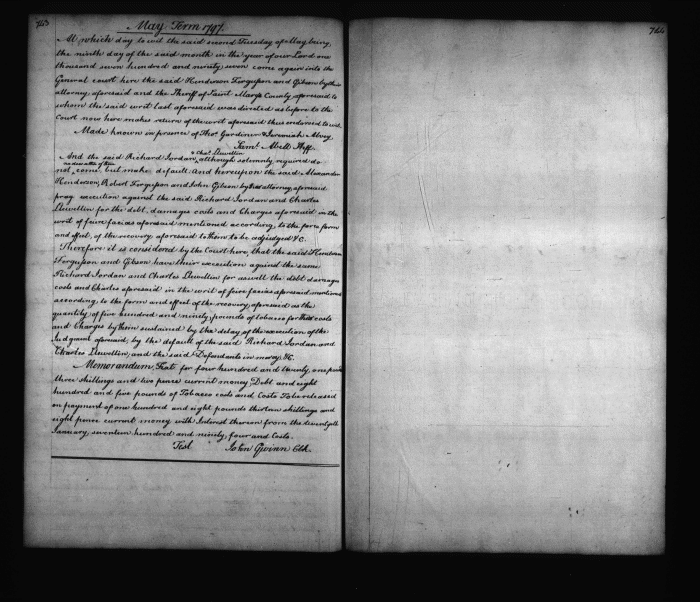 763
May Term 1797.
At which day to wit the said second Tuesday of May being
the ninth day of the said month in the year of our Lord one
thousand seven hundred and ninety seven come again into the
General court here the said Henderson Ferguson and Gibson by their
attorney aforesaid and the Sheriff of Saint Marys County aforesaid to
whom the said writ last aforesaid was directed as before to the
Court now here makes return of the writ aforesaid thus endorsed to wit.
Made known in presence of Thos. Gardiner & Jeremiah
Saml. Abell Shff.
& Chas. Llewellin
And the said Richard Jordan although solemnly required do
not come but make default. And hereupon the said Alexander
Henderson, Robert Ferguson and John Gibson by their attorney aforesaid
pray execution against the said Richard Jordan and Charles
Llewellin for the debt, damages costs and Charges aforesaid in the
writ of scire facias aforesaid mentioned according, to the force form
and effect, of the recovery aforesaid to them to be adjudged &C.
Therefore it is considered by the Court here, that the said Henderson
Ferguson and Gibson have their execution against the same
Richard Jordan and Charles Llewellin for as well the debt damages
costs and Charles aforesaid in the writ of scire facias aforesaid mentioned
according, to the form and effect of the recovery, aforesaid as the
quantity of five hundred and ninety, pounds of tobacco for their costs
and Charges by them sustained by the delay of the execution of the
Judgment aforesaid, by the default of the said Richard Jordan and
Charles Llewellin, and the said Defendants in mercy, &C.
Memorandum, that for four hundred and twenty, one pounds
three shillings and two pence current money, Debt and eight
hundred and five pounds of Tobacco costs and Costs To be released
on payment of one hundred and eight pounds thirteen shillings and
eight pence current money with Interest thereon from the
January, seventeen hundred and ninety, four and Costs.
Test John Gwinn Clk.
764